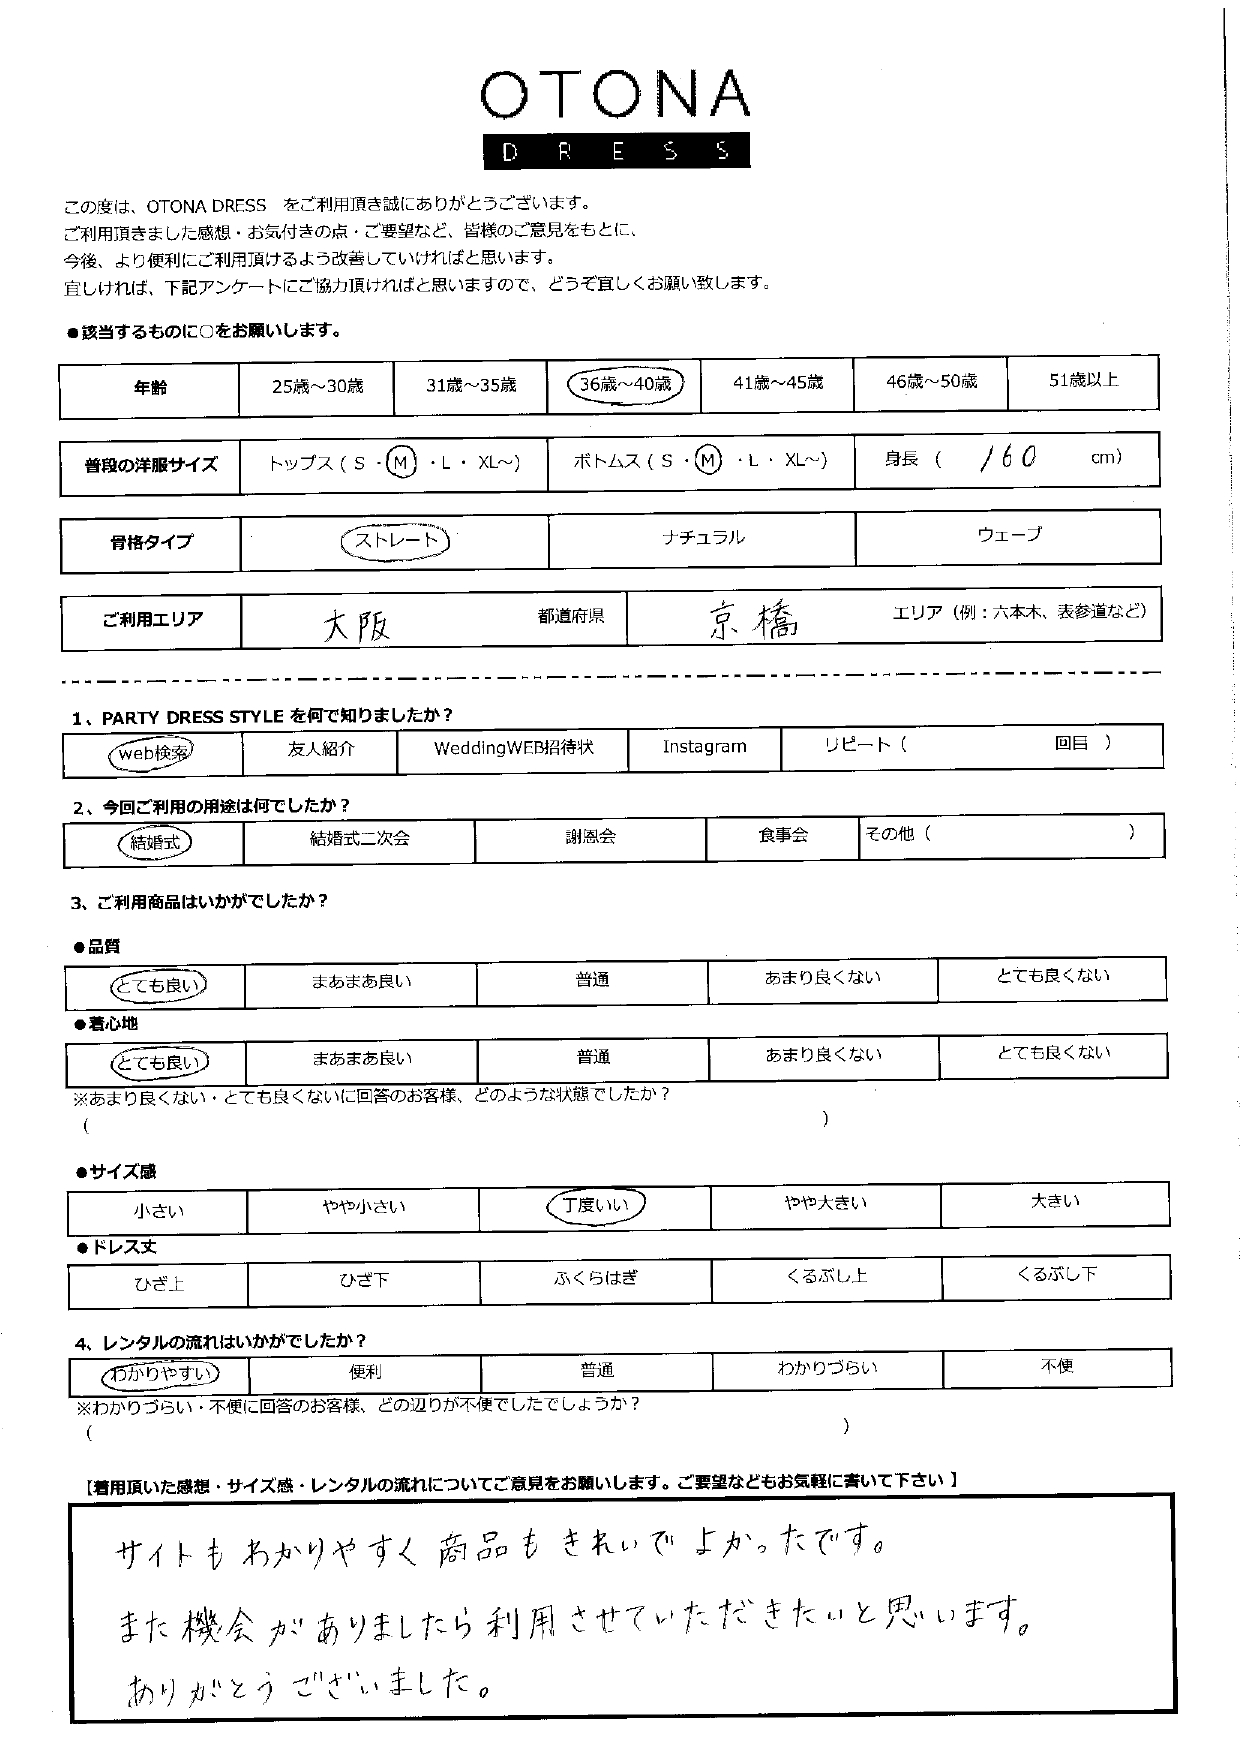 OTONA
DRESS
この度は、OTONA DRESS　をご利用頂き誠にありがとうございます。
ご利用頂きました感想・お気付きの点・ご要望など、皆様のご意見をもとに、
今後、より便利にご利用頂けるよう改善していければと思います。
宜しければ、下記アンケートにご協力頂ければと思いますので、どうぞ宜しくお願い致します。
●該当するものに○をお願いします。
年齢 25歳～30歳 31歳～35歳 36歳～40歳 41歳～45歳 46歳～50歳 51歳以上
普段の洋服サイズ トップス ( S ・ M ・ L ・ XL～) ボトムス ( S ・ M ・ L ・ XL～) 身長 ( 160 cm)
骨格タイプ ストレート ナチュラル ウェーブ
ご利用エリア 大阪 都道府県 京橋 エリア (例：六本木、表参道など)
1、PARTY DRESS STYLE を何で知りましたか？
web検索 友人紹介 WeddingWEB招待状 Instagram リピート ( 回目 )
2、今回ご利用の用途は何でしたか？
結婚式 結婚式二次会 謝恩会 食事会 その他 ( )
3、ご利用商品はいかがでしたか？
●品質
とても良い まあまあ良い 普通 あまり良くない とても良くない
●着心地
とても良い まあまあ良い 普通 あまり良くない とても良くない
※あまり良くない・とても良くないに回答のお客様、どのような状態でしたか？
( )
●サイズ感
小さい やや小さい 丁度いい やや大きい 大きい
●ドレス丈
ひざ上 ひざ下 ふくらはぎ くるぶし上 くるぶし下
4、レンタルの流れはいかがでしたか？
わかりやすい 便利 普通 わかりづらい 不便
※わかりづらい・不便に回答のお客様、どの辺りが不便でしたでしょうか？
( )
【着用頂いた感想・サイズ感・レンタルの流れについてご意見をお願いします。ご要望などもお気軽に書いて下さい】
サイトもわかりやすく商品もきれいでよかったです。
また機会がありましたら利用させていただきたいと思います。
ありがとうございました。